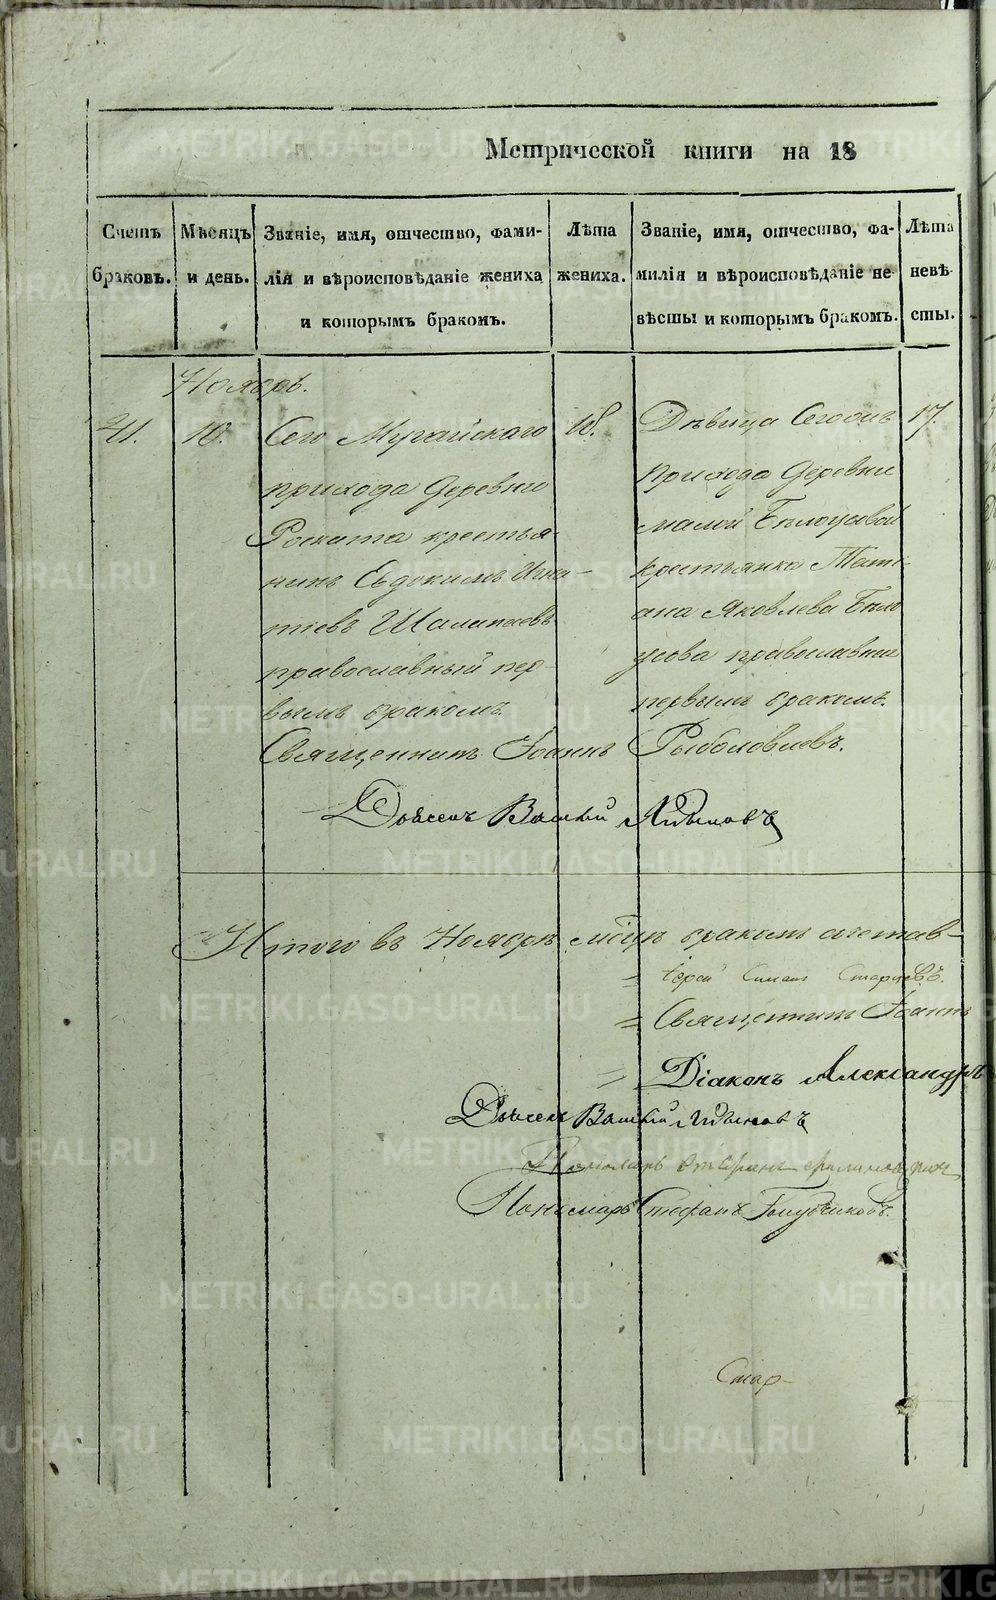 Метрической книги на 18
Счетъ браковъ.
Мѣсяцъ и день.
Званіе, имя, отчество, фами-
лія и вѣроисповѣданіе жениха
и которымъ бракомъ.
Лѣта жениха.
Званіе, имя, отчество, фа-
милія и вѣроисповѣданіе не-
вѣсты и которымъ бракомъ.
Лѣта невѣ-
сты.
Ноябрь.
41.
10.
Сего Мугайскаго
прихода деревни
Роската крестья-
нинъ Евдокимъ Игна-
тіевъ Шалапаевъ
православный пер-
вымъ бракомъ.
18.
Дѣвица Сегожъ
прихода деревни
малой Бѣлоусовой
крестьянка Тати-
ана Яковлева Бѣло
усова православная
первымъ бракомъ.
17.
Священникъ Іоаннъ Рыболовлевъ.
Дьячекъ
Итого въ Ноябрѣ мѣсяцѣ бракомъ сочетав-
Іерей Симеонъ Старцевъ.
Священникъ Іоаннъ
Діаконъ Александръ
Дьячекъ
Пономарь
Пономарь Стефанъ Голубчиковъ.
Стар-
METRIKI.GASO-URAL.RU